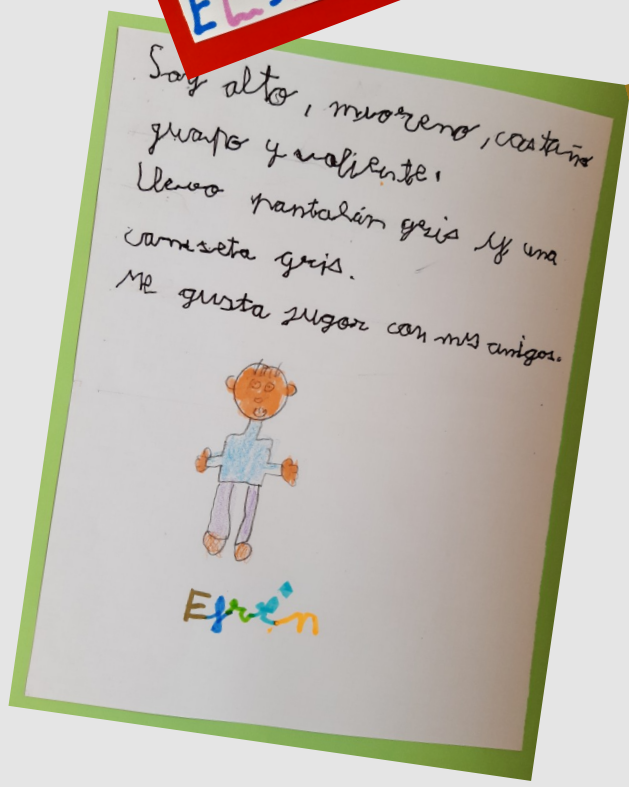 Soy alto, muoreno, castaño
guapo y valiente.
Llevo pantalón gris y una
camiseta gris.
Me gusta jugar con mis amigos.
Efrén